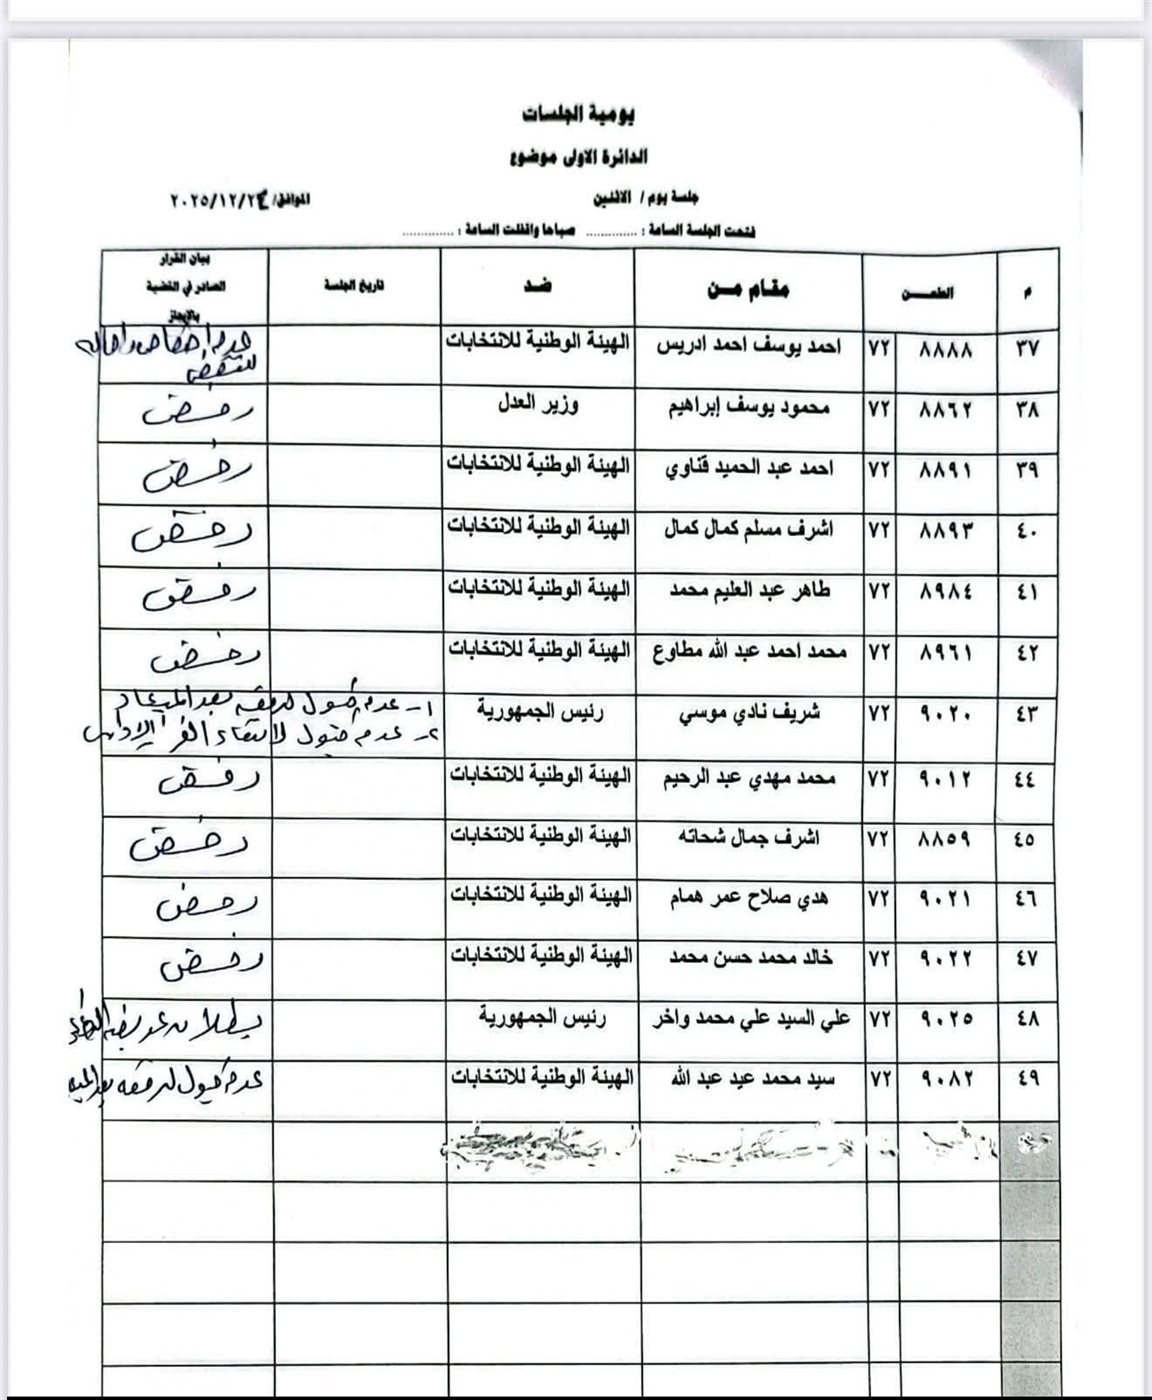 يومية الجلسات
الدائرة الاولى موضوع
جلسة يوم / الاثنين الموافق/ ٢٠٢٥/١٢/٢٤
فتحت الجلسة الساعة : ............ صباحا واقفلت الساعة : ............
م الطعـــــن مقـام مـــن ضـد تاريخ الجلسة بيان القرار
الصادر في القضية
بالإيجاز
٣٧ ٨٨٨٨ ٧٢ احمد يوسف احمد ادريس الهيئة الوطنية للانتخابات عدم اختصاص واحالة
للنقض
٣٨ ٨٨٦٢ ٧٢ محمود يوسف إبراهيم وزير العدل رفض
٣٩ ٨٨٩١ ٧٢ احمد عبد الحميد قناوي الهيئة الوطنية للانتخابات رفض
٤٠ ٨٨٩٣ ٧٢ اشرف مسلم كمال كمال الهيئة الوطنية للانتخابات رفض
٤١ ٨٩٨٤ ٧٢ طاهر عبد العليم محمد الهيئة الوطنية للانتخابات رفض
٤٢ ٨٩٦١ ٧٢ محمد احمد عبد الله مطاوع الهيئة الوطنية للانتخابات رفض
٤٣ ٩٠٢٠ ٧٢ شريف نادي موسي رئيس الجمهورية ١- عدم قبول لرفعه بعد الميعاد
٢- عدم قبول لانتفاء القرار الإداري
٤٤ ٩٠١٢ ٧٢ محمد مهدي عبد الرحيم الهيئة الوطنية للانتخابات رفض
٤٥ ٨٨٥٩ ٧٢ اشرف جمال شحاته الهيئة الوطنية للانتخابات رفض
٤٦ ٩٠٢١ ٧٢ هدي صلاح عمر همام الهيئة الوطنية للانتخابات رفض
٤٧ ٩٠٢٢ ٧٢ خالد محمد حسن محمد الهيئة الوطنية للانتخابات رفض
٤٨ ٩٠٢٥ ٧٢ علي السيد علي محمد واخر رئيس الجمهورية بطلان عريضة الطعن
٤٩ ٩٠٨٢ ٧٢ سيد محمد عيد عبد الله الهيئة الوطنية للانتخابات عدم قبول لرفعه بعد الميعاد